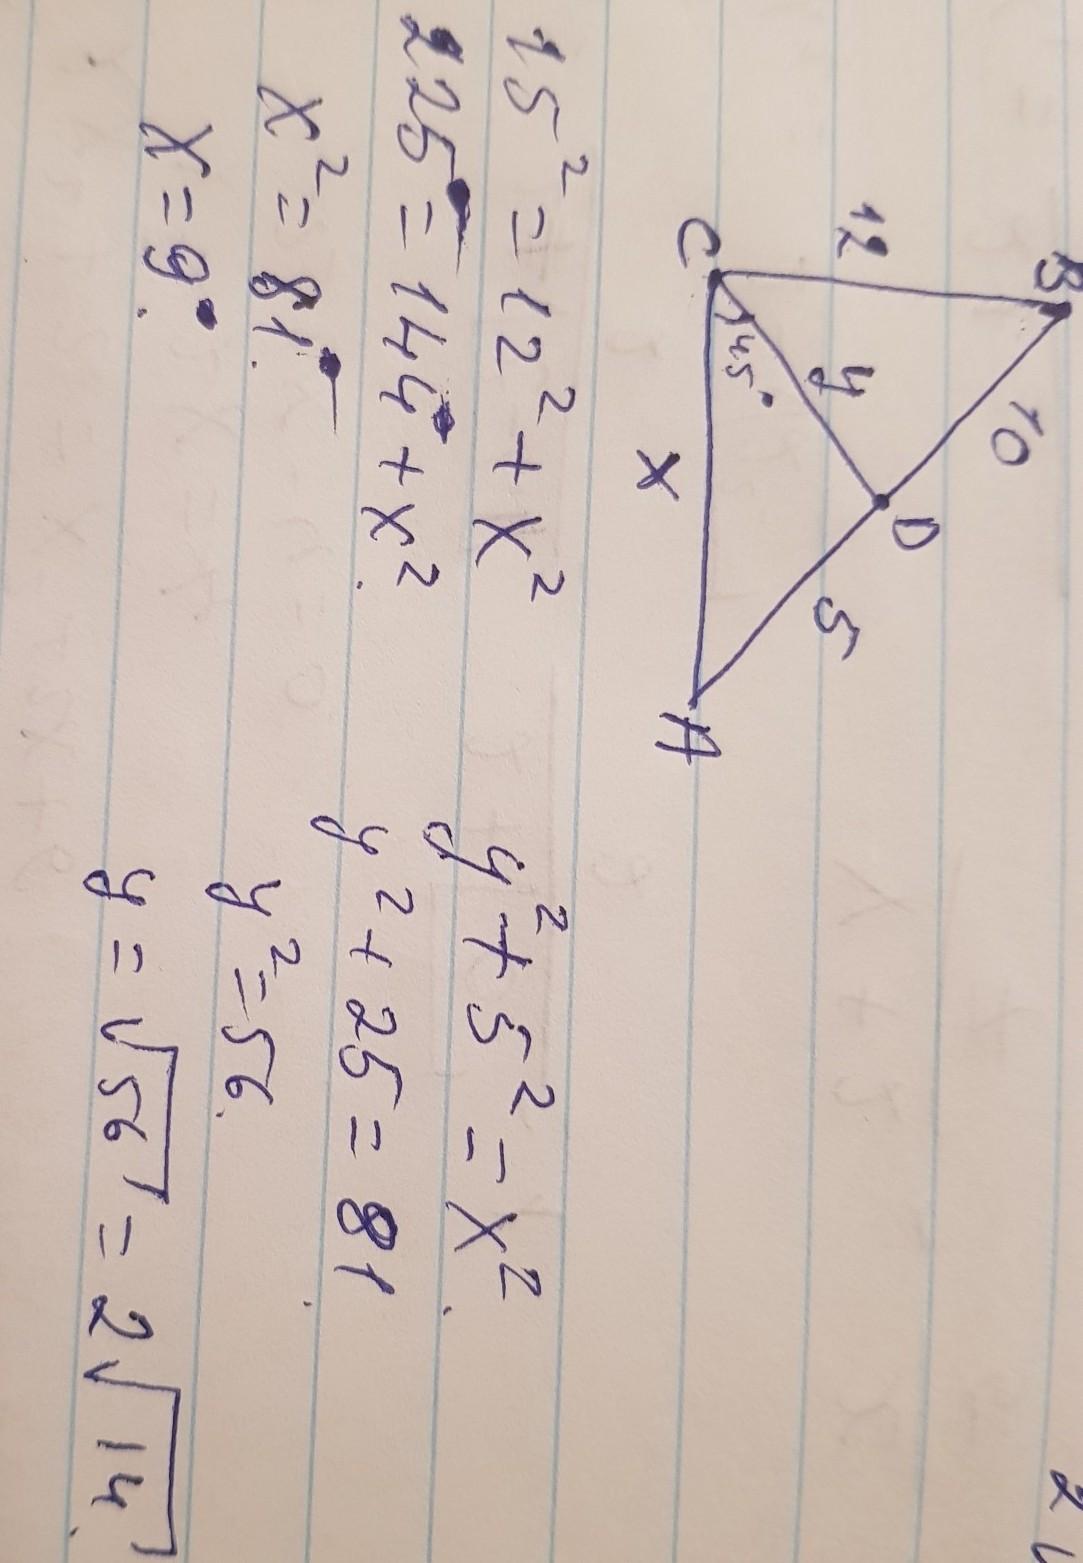 B
12
10
45°
y
D
C
5
x
A
15² = 12² + x²
225 = 144 + x²
x² = 81
x = 9
y² + 5² = x²
y² + 25 = 81
y² = 56
y = √56 = 2√14